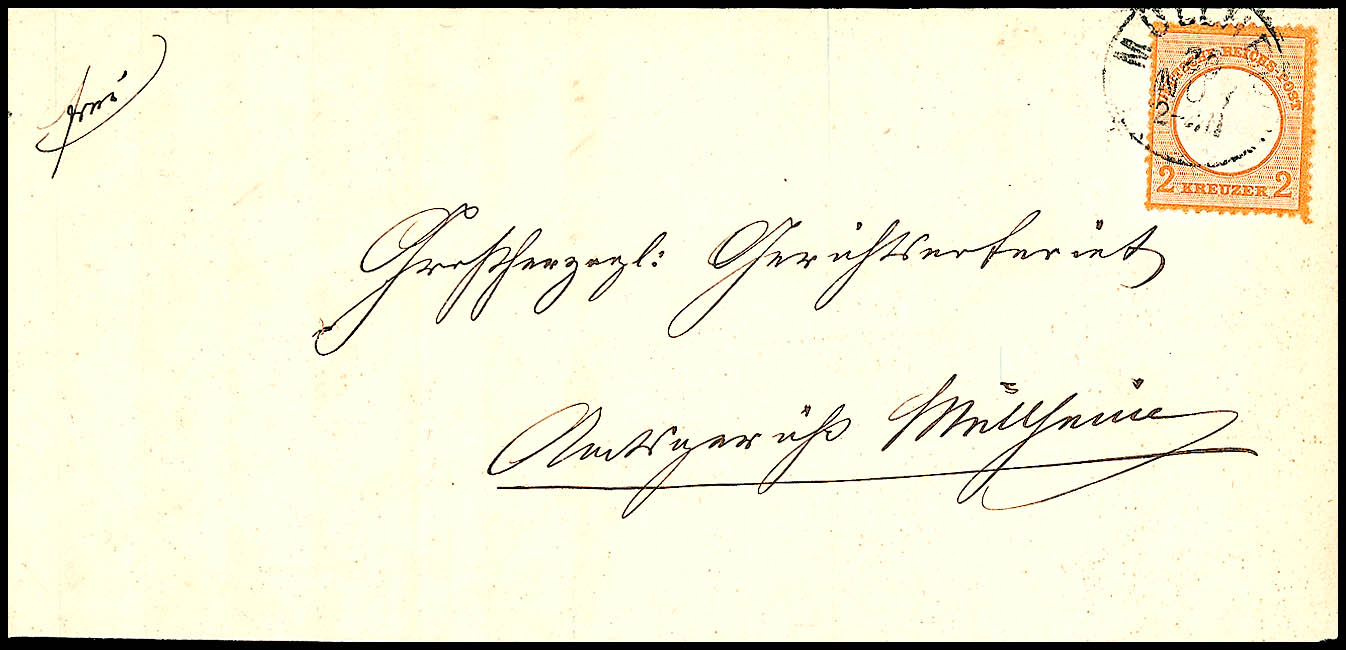 frei
MÜLLH
DEUTSCHE REICHS-POST
2 KREUZER 2
Großherzogl: Gerichtsnotariat
Amtsgericht Müllheim